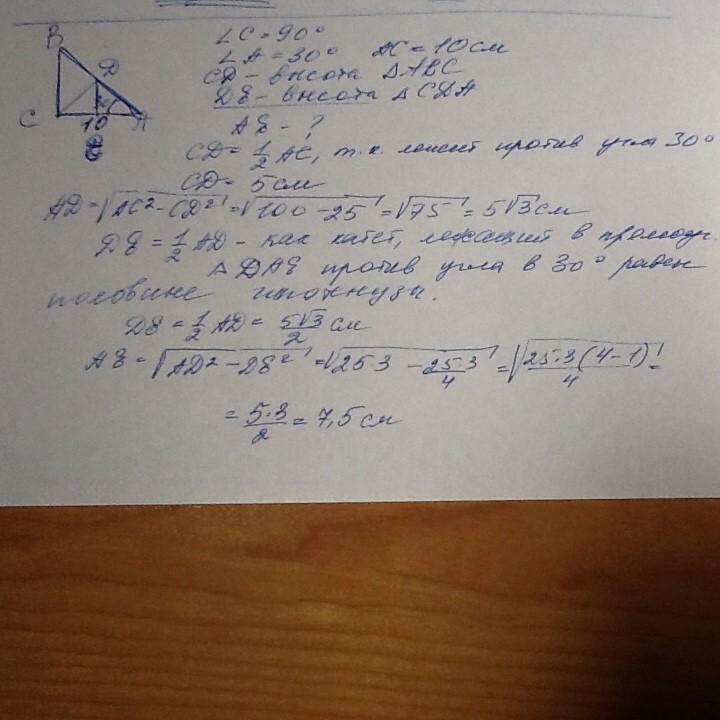 B
D
C
A
10
E
∠C = 90°
∠A = 30° AC = 10 см
CD – высота △ABC
DE – высота △CDA
AE – ?
CD = 1/2 AC, т.к. лежит против угла 30°
CD = 5 см
AD = √(AC² - CD²) = √(100 - 25) = √75 = 5√3 см
DE = 1/2 AD – как катет, лежащий в прямоуг.
△DAE против угла в 30° равен
половине гипотенузы.
DE = 1/2 AD = 5√3/2 см
AE = √(AD² - DE²) = √(25·3 - 25·3/4) = √(25·3/4 (4-1)) =
= 5·3/2 = 7,5 см